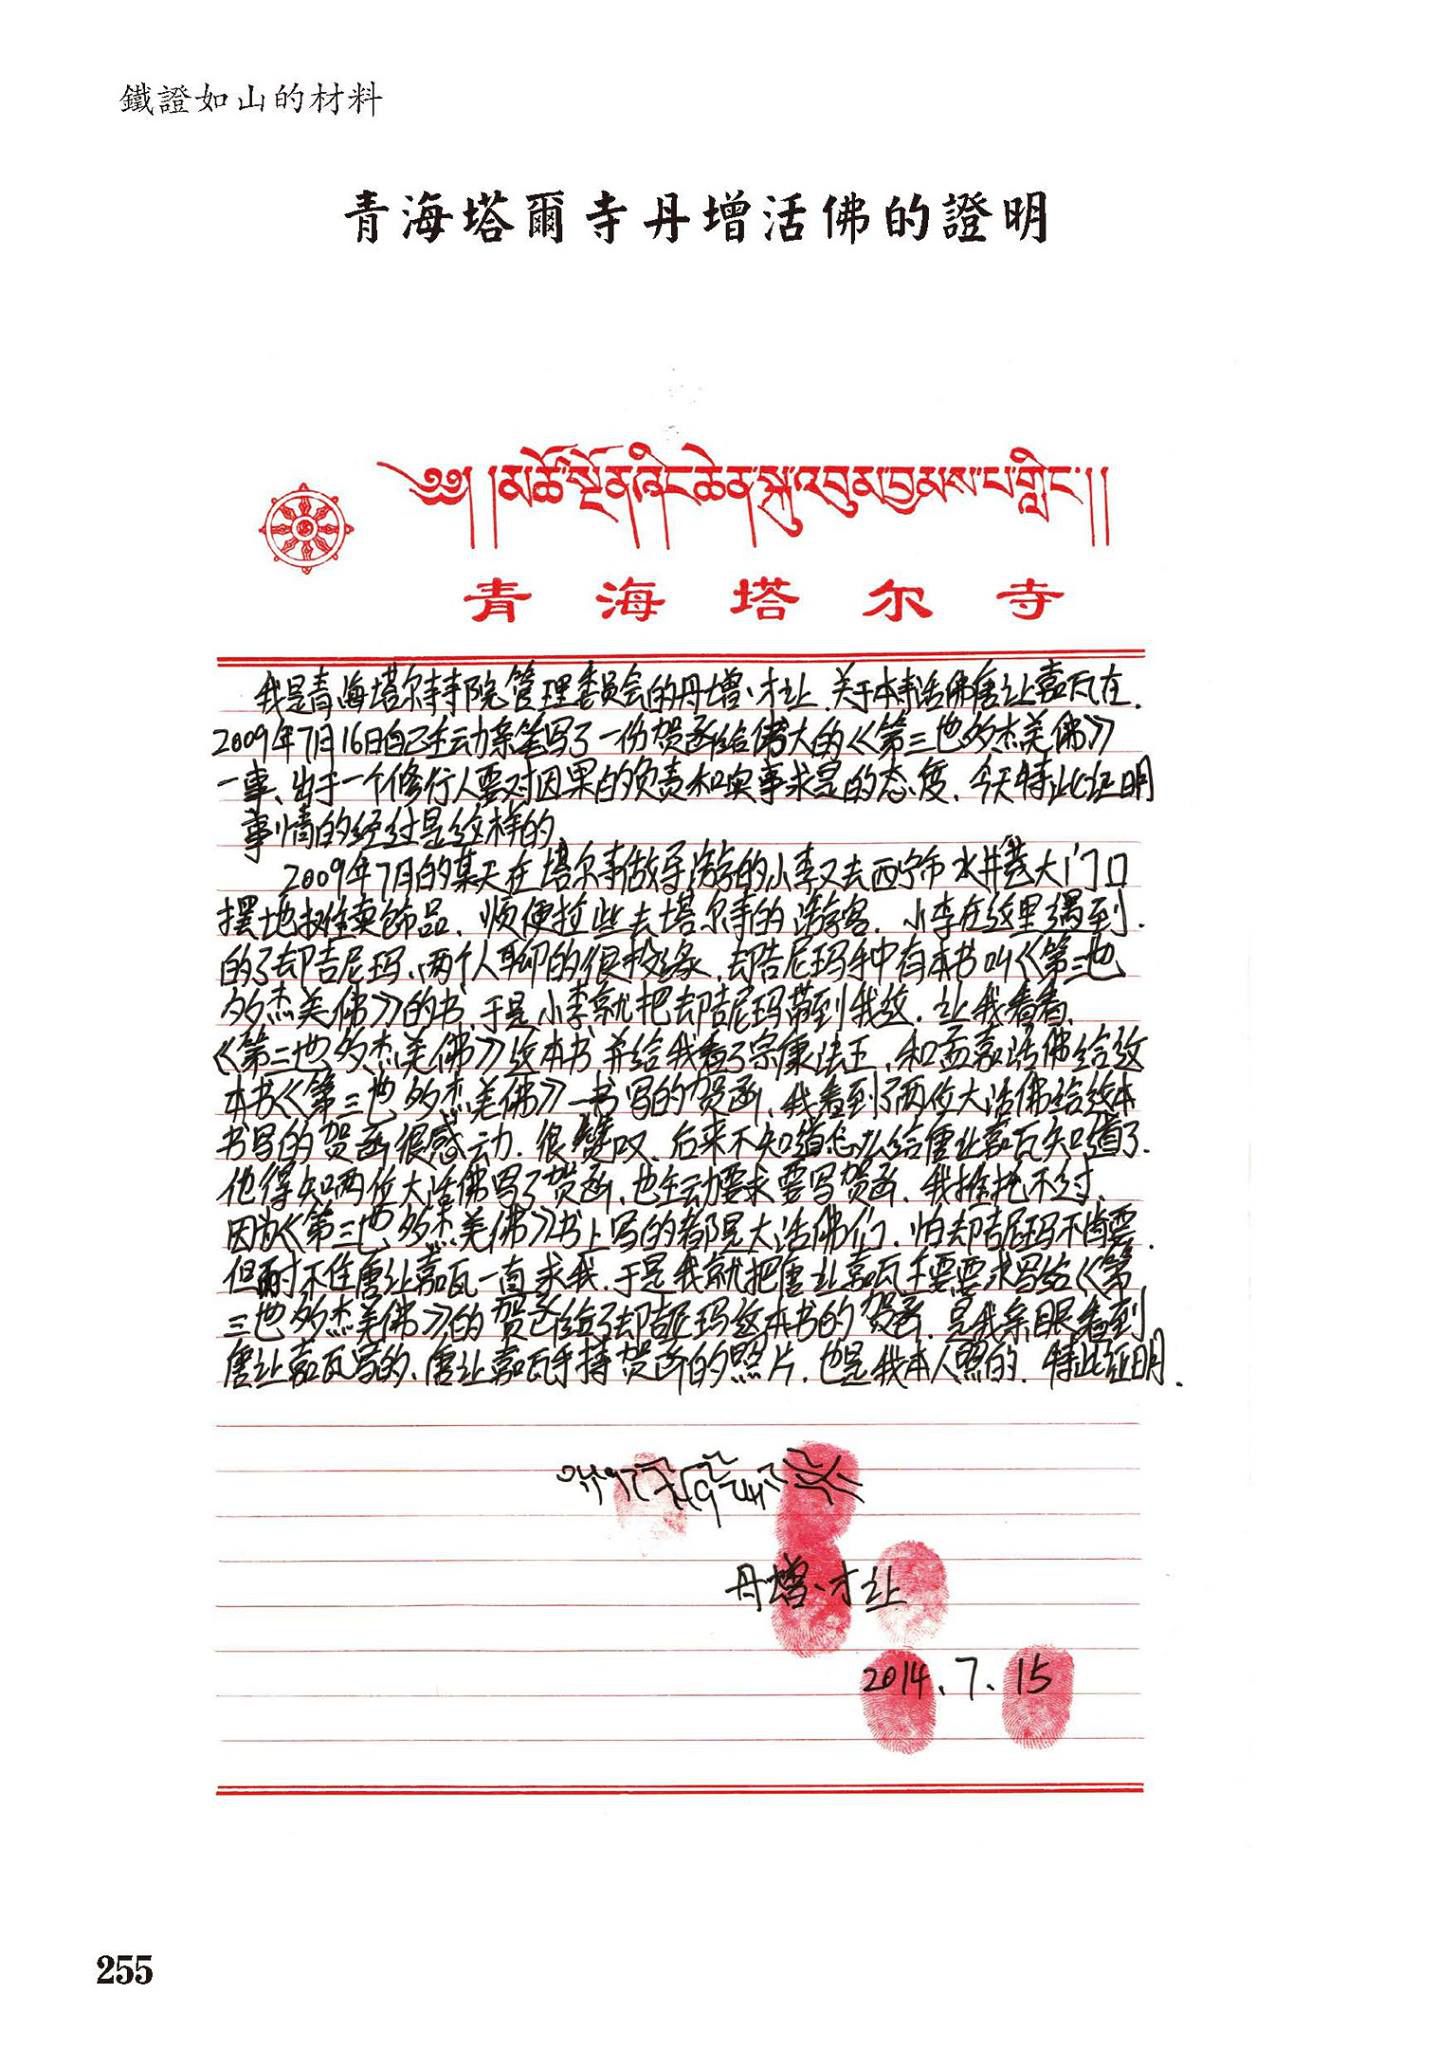 鐵證如山的材料
青海塔爾寺丹增活佛的證明
༄༅། །མཚོ་སྔོན་ཞིང་ཆེན་སྐུ་འབུམ་བྱམས་པ་གླིང་། །
青海塔尔寺
我是青海塔尔寺寺院管理委员会的丹增·才让.关于本寺活佛唐让嘉瓦在.
2009年7月16日自己主动亲笔写了一份贺函给伟大的《第三世多杰羌佛》
一事、出于一个修行人要对因果的负责和实事求是的态度.今天特此证明
事情的经过是这样的.
2009年7月的某天在塔尔寺做导游的小李又去西宁市水井巷大门口
摆地摊卖饰品.顺便拉些去塔尔寺的游客.小李在这里遇到.
的了却吉尼玛、两个人聊的很投缘.却吉尼玛手中有本书叫《第三世
多杰羌佛》的书.于是小李就把却吉尼玛带到我这.让我看看.
《第三世多杰羌佛》这本书并给我看了宗康法王、和孟嘉活佛给这
本书《第三世多杰羌佛》一书写的贺函、我看到了两位大活佛给这本
书写的贺函很感动.很赞叹.后来不知道怎么给唐让嘉瓦知道了.
他得知两位大活佛写了贺函、也主动要求要写贺函.我推托不过、
因为《第三世多杰羌佛》书上写的都是大活佛们.怕却吉尼玛不肯要.
但耐不住唐让嘉瓦一直求我.于是我就把唐让嘉瓦主要要求写给《第
三世多杰羌佛》的贺函给了却吉尼玛这本书的贺函.是我亲眼看到
唐让嘉瓦写的、唐让嘉瓦手持贺函的照片.也是我本人照的.特此证明.
丹增·才让
2014.7.15
255